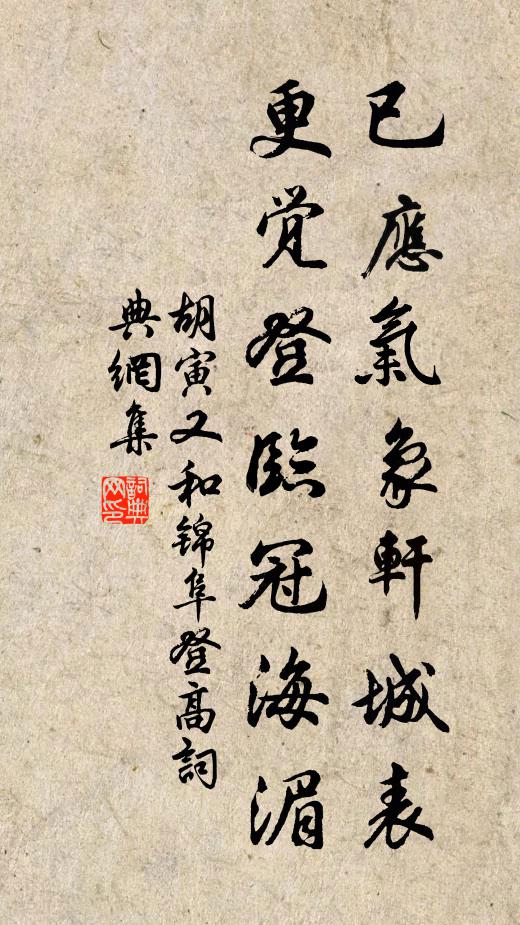 已應氣象軒城表
更覺登臨冠海湄
胡寅又和錦阜登高詞
典網集
詞典網印